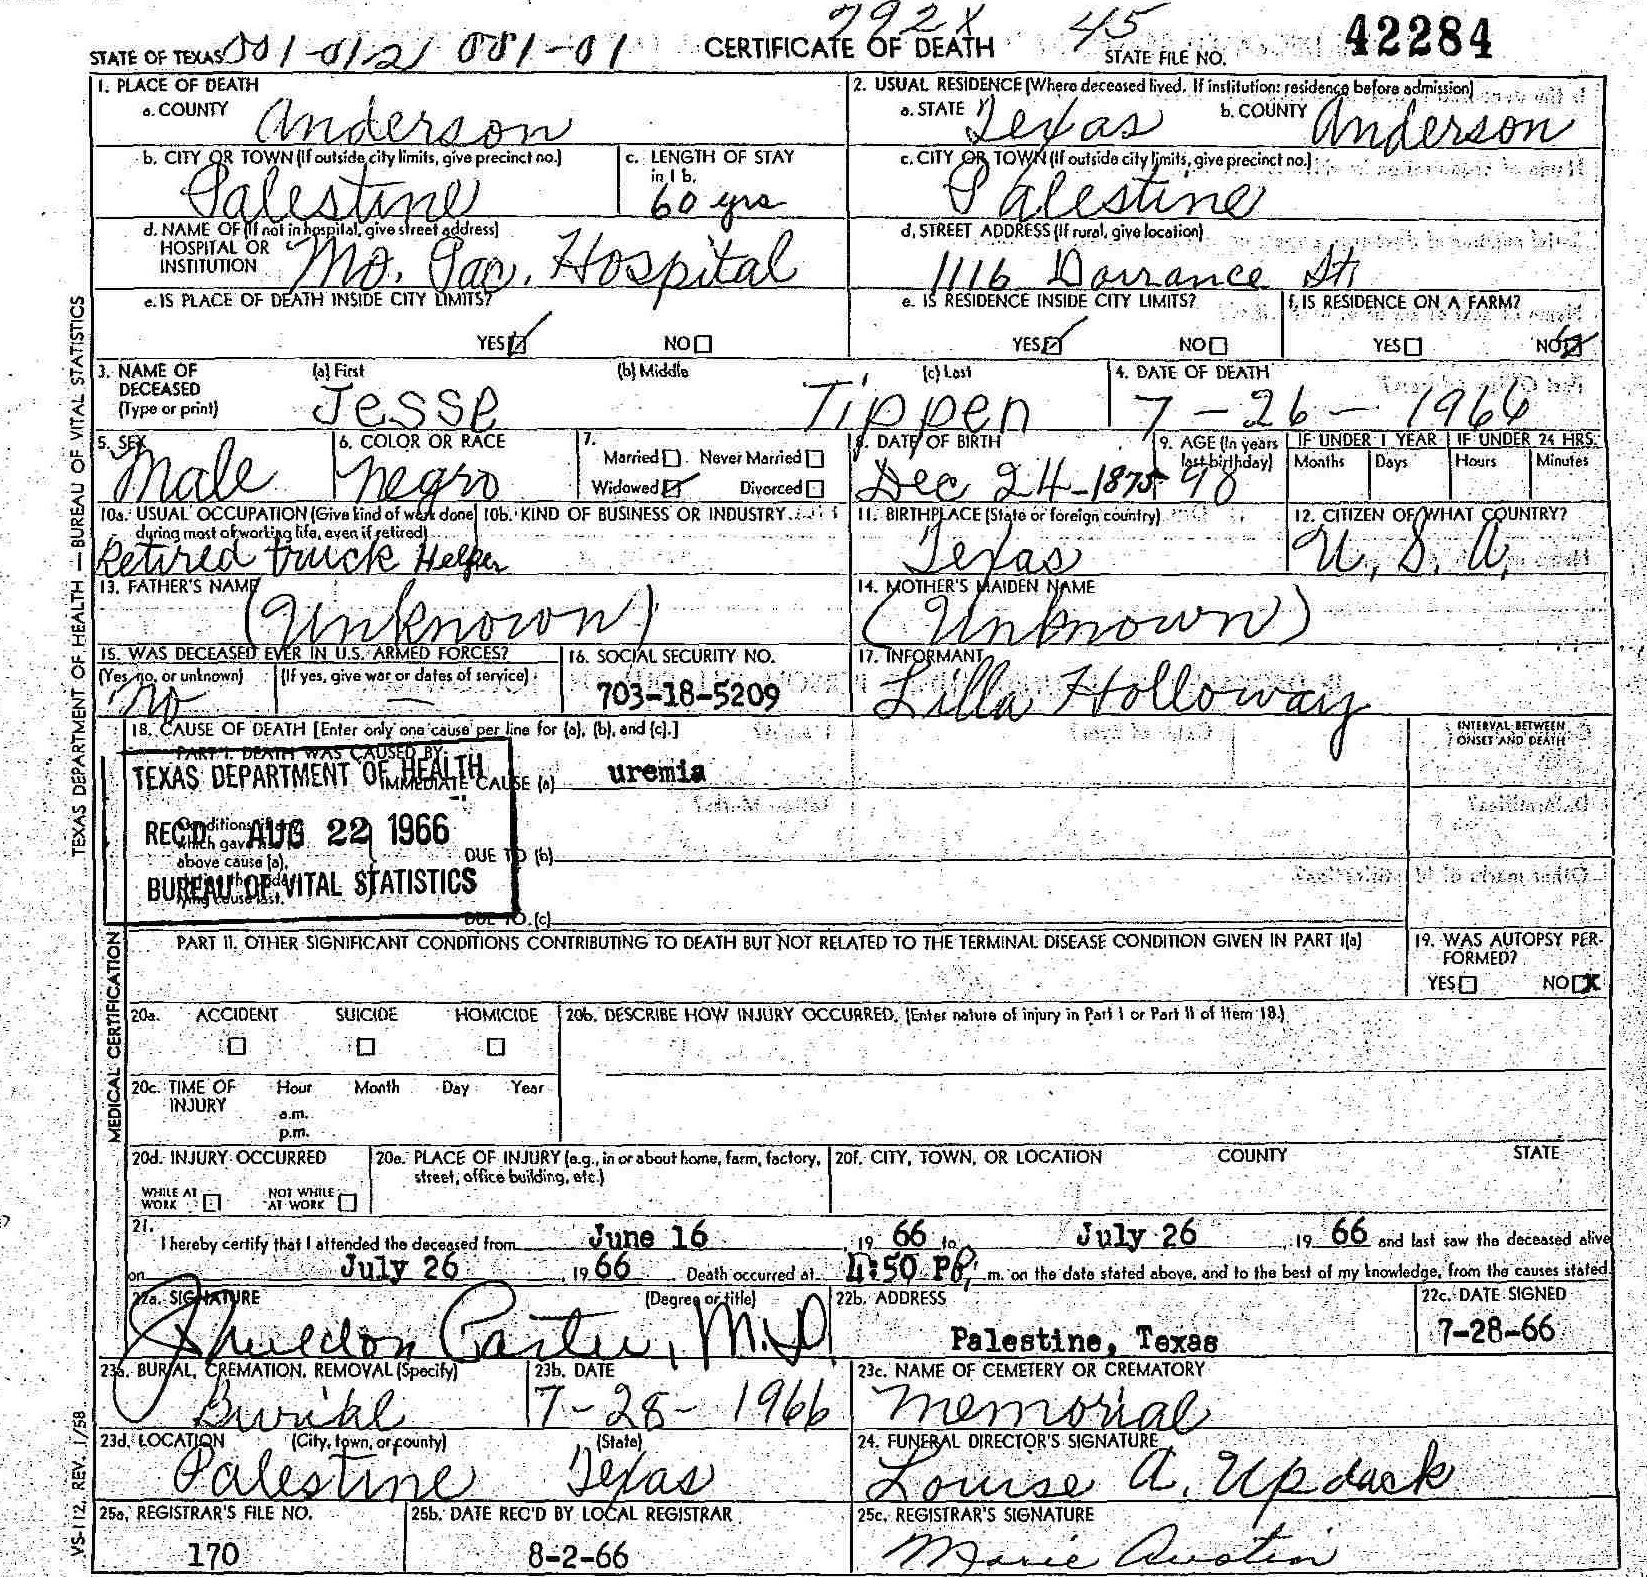 792X 45 42284
STATE OF TEXAS 001-012 081-01 CERTIFICATE OF DEATH STATE FILE NO.
1. PLACE OF DEATH
a. COUNTY Anderson
2. USUAL RESIDENCE (Where deceased lived. If institution: residence before admission)
a. STATE Texas b. COUNTY Anderson
b. CITY OR TOWN (If outside city limits, give precinct no.)
Palestine
c. LENGTH OF STAY in 1 b.
60 yrs
c. CITY OR TOWN (If outside city limits, give precinct no.)
Palestine
d. NAME OF (If not in hospital, give street address)
HOSPITAL OR
INSTITUTION Mo. Pac. Hospital
d. STREET ADDRESS (If rural, give location)
1116 Dorrance St.
e. IS PLACE OF DEATH INSIDE CITY LIMITS?
YES NO
e. IS RESIDENCE INSIDE CITY LIMITS?
YES NO
f. IS RESIDENCE ON A FARM?
YES NO
3. NAME OF DECEASED (Type or print)
(a) First (b) Middle (c) Last
Jesse Tippen
4. DATE OF DEATH
7-26-1966
5. SEX
Male
6. COLOR OR RACE
negro
7.
Married Never Married
Widowed Divorced
8. DATE OF BIRTH
Dec 24-1875
9. AGE (In years last birthday)
90
IF UNDER 1 YEAR IF UNDER 24 HRS.
Months Days Hours Minutes
10a. USUAL OCCUPATION (Give kind of work done during most of working life, even if retired)
Retired truck Helper
10b. KIND OF BUSINESS OR INDUSTRY
11. BIRTHPLACE (State or foreign country)
Texas
12. CITIZEN OF WHAT COUNTRY?
U. S. A.
13. FATHER'S NAME
(Unknown)
14. MOTHER'S MAIDEN NAME
(Unknown)
15. WAS DECEASED EVER IN U.S. ARMED FORCES?
(Yes, no, or unknown) (If yes, give war or dates of service)
no —
16. SOCIAL SECURITY NO.
703-18-5209
17. INFORMANT
Lilla Holloway
18. CAUSE OF DEATH [Enter only one cause per line for (a), (b), and (c).]
INTERVAL BETWEEN ONSET AND DEATH
PART I. DEATH WAS CAUSED BY:
IMMEDIATE CAUSE (a) uremia
TEXAS DEPARTMENT OF HEALTH
REC'D AUG 22 1966
BUREAU OF VITAL STATISTICS
above cause (a),
DUE TO (b)
DUE TO (c)
PART II. OTHER SIGNIFICANT CONDITIONS CONTRIBUTING TO DEATH BUT NOT RELATED TO THE TERMINAL DISEASE CONDITION GIVEN IN PART I(a)
19. WAS AUTOPSY PERFORMED?
YES NO X
20a. ACCIDENT SUICIDE HOMICIDE
20b. DESCRIBE HOW INJURY OCCURRED. (Enter nature of injury in Part I or Part II of Item 18.)
20c. TIME OF INJURY
Hour Month Day Year
a.m.
p.m.
20d. INJURY OCCURRED
WHILE AT WORK NOT WHILE AT WORK
20e. PLACE OF INJURY (e.g., in or about home, farm, factory, street, office building, etc.)
20f. CITY, TOWN, OR LOCATION COUNTY STATE
21.
I hereby certify that I attended the deceased from June 16, 19 66 to July 26, 19 66 and last saw the deceased alive
on July 26, 19 66. Death occurred at 4:50 P. m. on the date stated above, and to the best of my knowledge, from the causes stated.
22a. SIGNATURE (Degree or title)
Sheldon Carter, M.D.
22b. ADDRESS
Palestine, Texas
22c. DATE SIGNED
7-28-66
23a. BURIAL, CREMATION, REMOVAL (Specify)
Burial
23b. DATE
7-28-1966
23c. NAME OF CEMETERY OR CREMATORY
Memorial
23d. LOCATION (City, town, or county) (State)
Palestine Texas
24. FUNERAL DIRECTOR'S SIGNATURE
Louise A. Updack
25a. REGISTRAR'S FILE NO.
170
25b. DATE REC'D BY LOCAL REGISTRAR
8-2-66
25c. REGISTRAR'S SIGNATURE
Marie Austin
TEXAS DEPARTMENT OF HEALTH — BUREAU OF VITAL STATISTICS
MEDICAL CERTIFICATION
VS-112, REV. 1/58